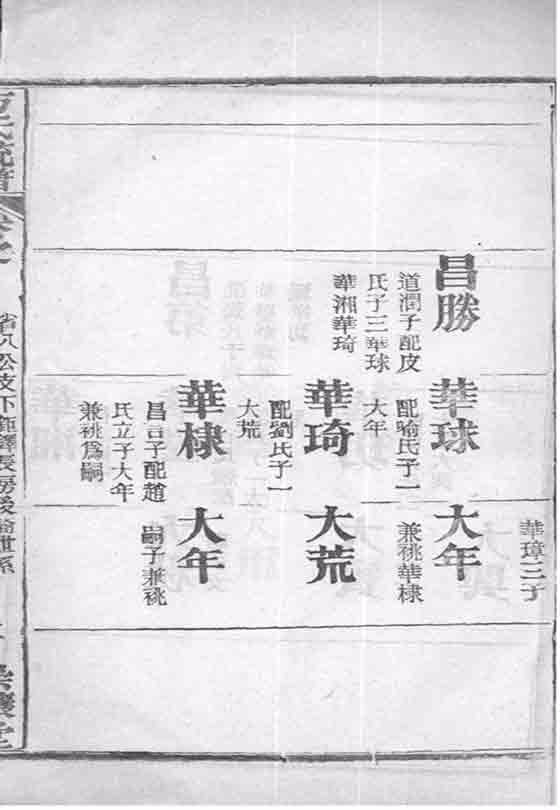 華璋三子
昌勝
道潤子配皮
氏子三華球
華湘華琦
華球
配喻氏子一
大年
大年
兼祧華棣
華琦
配劉氏子一
大荒
大荒
華棣
昌言子配趙
氏立子大年
兼祧爲嗣
大年
嗣子兼祧
氏流譜
省八公支下
房後裔世系